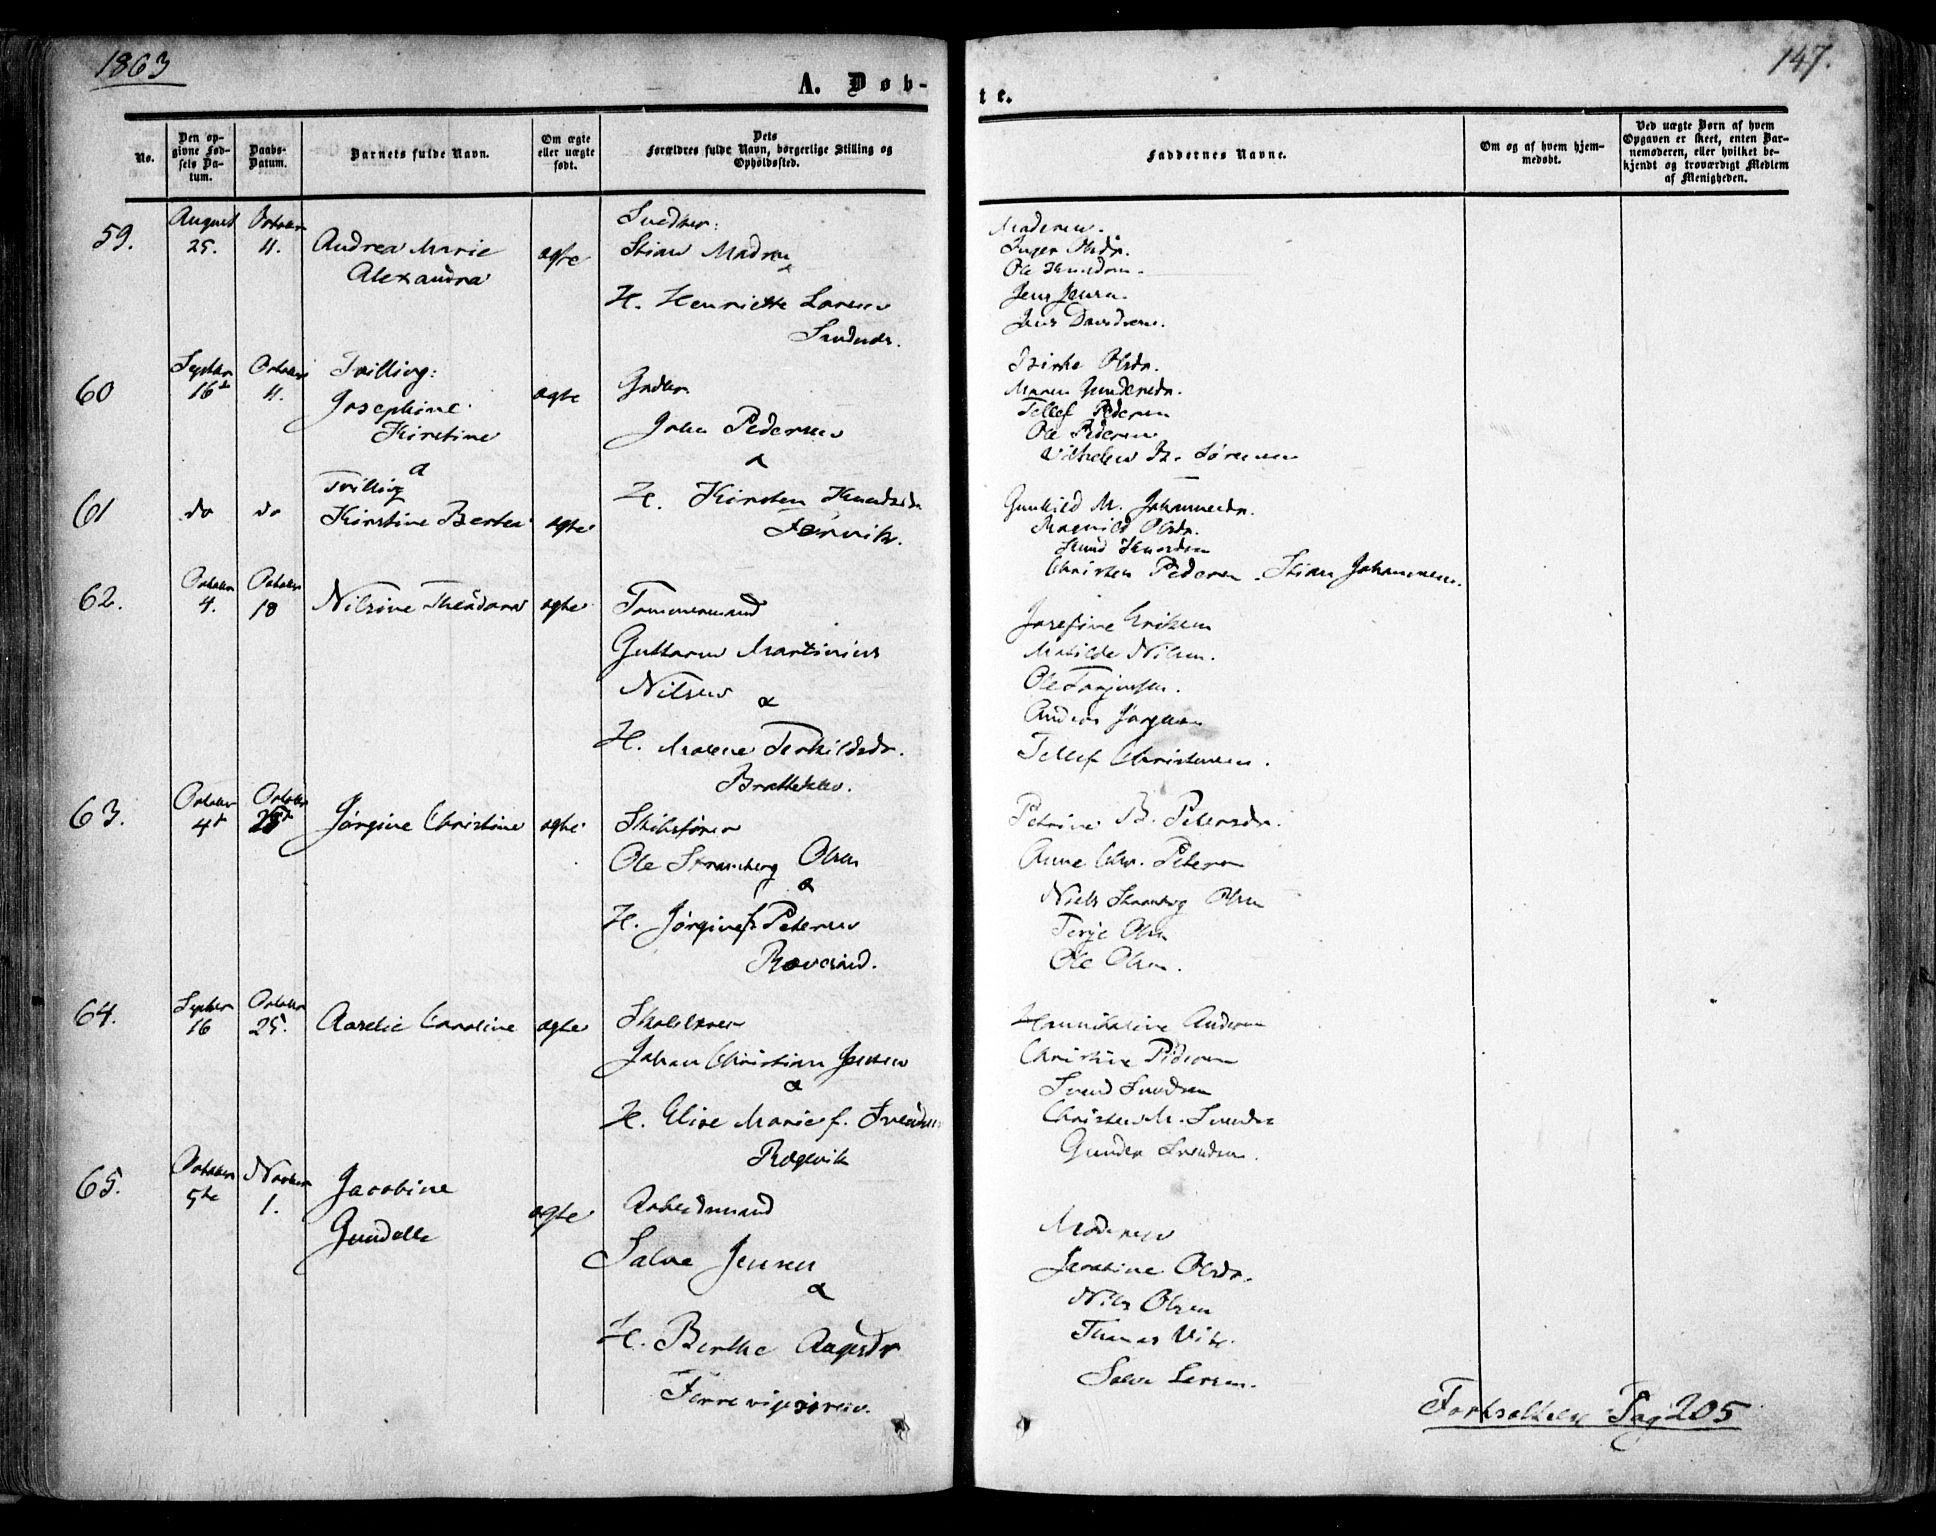 1863
147.
A. Døb-
te.
No.
Den op-
givne Fød-
sels Da-
tum.
Daabs-
Datum.
Barnets fulde Navn.
Om ægte
eller uægte
født.
Dets
Forældres fulde Navn, borgerlige Stilling og
Opholdssted.
Faddernes Navne.
Om og af hvem hjem-
medøbt.
Ved uægte Børn af hvem
Opgaven er skeet, enten Bar-
nemoderen, eller hvilket be-
kjendt og troværdigt Medlem
af Menigheden.
59.
August
25.
October
11.
Andrea Marie
Alexandra
ægte
Stian Madsen
&
H. Henriette Larsen
Moderen.
Inger Olsdr.
Ole Knudsen.
Jens Jensen.
Jens Davidsen.
60
Septbr
16de
October
11.
Tvilling:
Josephine
Kirstine
&
ægte
John Pedersen
&
H. Kirsten Knudsdr
Fervik.
Birthe Olsdr.
Maren Gundersdr.
Tellef Pedersen
Ole Pedersen
Vilhelm B. Sørensen
61
do
do
Tvilling
Kirstine Bertea
ægte
Gunhild M. Johannesdr.
Ragnild Olsdr.
Knud Knudsen
Christen Pedersen. Stian Johannesen.
62.
October
4.
October
18
Nilsine Theodora
ægte
Tømmermand
Guttorm Martinius
Nilsen &
H. Marene Terkildsdr.
Bratteklev.
Josefine Eriksen
Matilde Nilsen.
Ole Terjersen.
Andreas Jørgensen
Tellef Christensen.
63.
October
4de
October
25de
Jørgine Christine
ægte
Skibsfører
Ole Strømberg Olsen
&
H. Jørgine f. Petersen
Revesand.
Petrine B. Petersdr.
Anne Chr. Petersen
Niels Strømberg Olsen
Terje Olsen
Ole Olsen.
64.
Septber
16
October
25.
Aaselie Caroline
ægte
Skolelærer
Johan Christian Jensen
&
H. Elise Marie f. Svendsen
Rægevik
Hannikaline Andersen
Christine Pedersen
Svend Svendsen
Christen M. Svendsen
Gunder Svendsen.
65.
October
5te
Novber
1.
Jacobine
Gundelle
ægte
Arbeidsmand
Salve Jensen
&
H. Berthe Aagesdr
Moderen
Jensine Olsdr.
Nils Olsen
Thomas Vik.
Salve Larsen.
Fortsættelse Pag 205